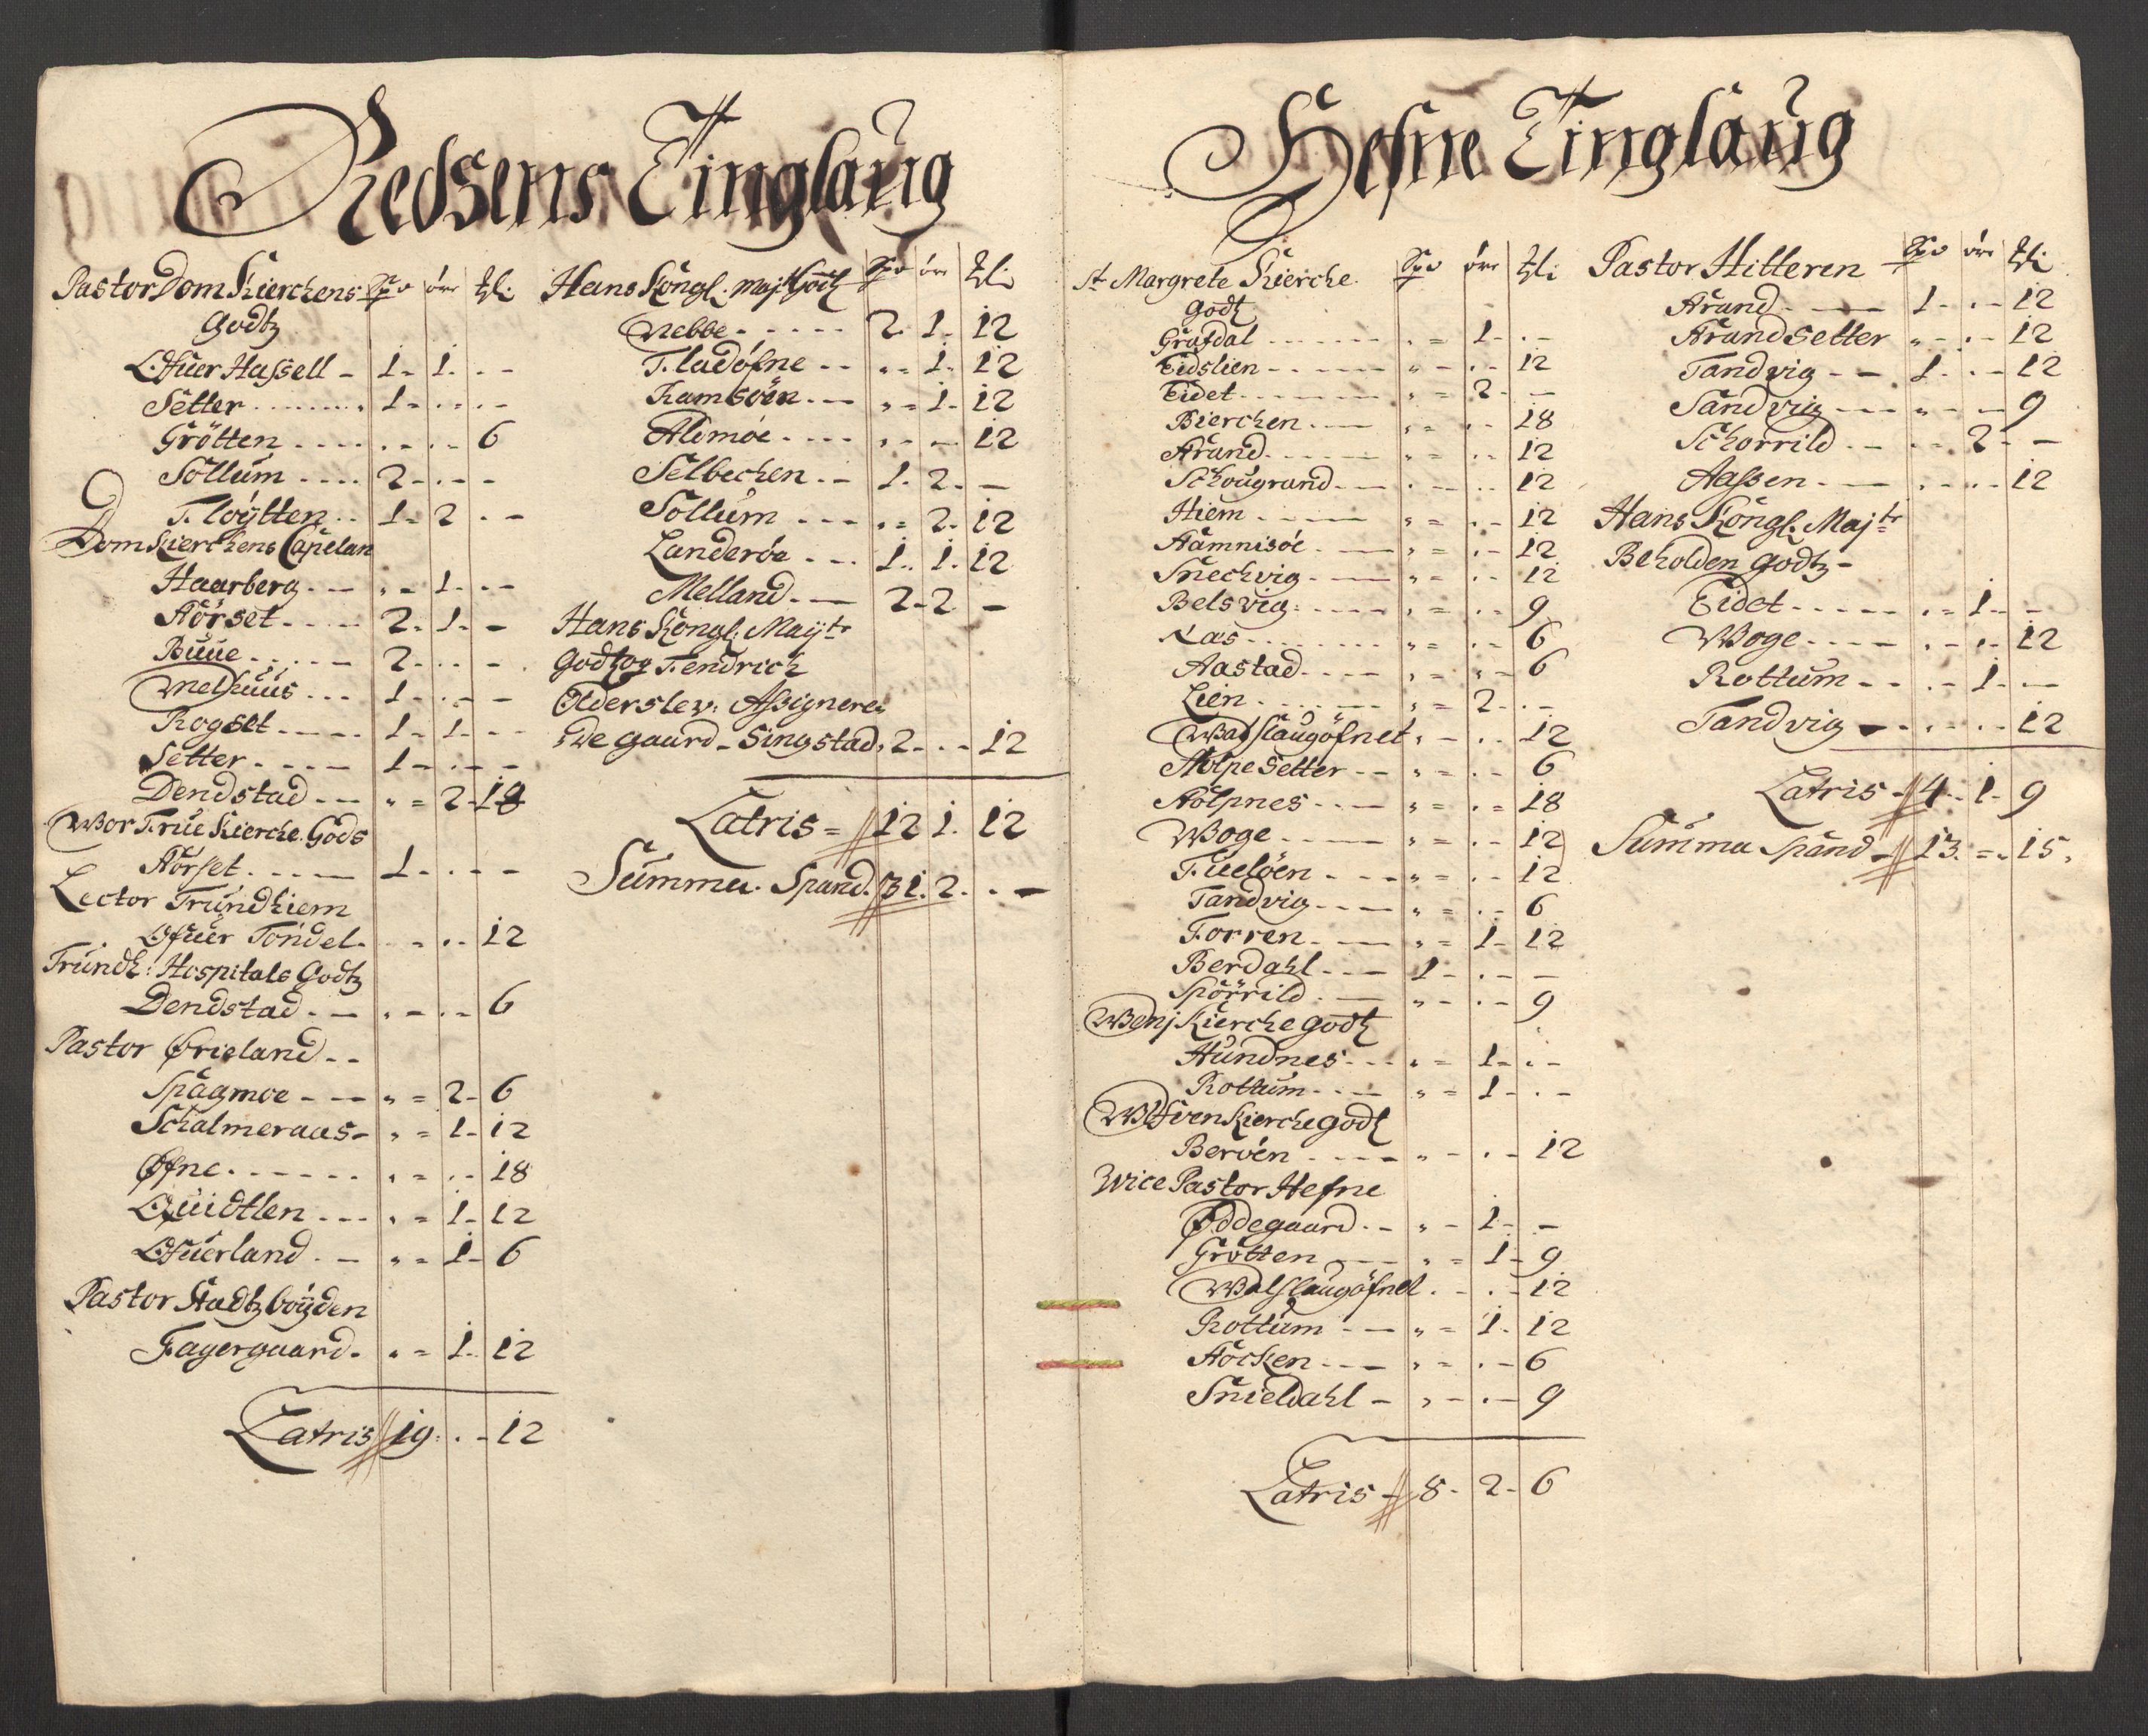 Redsens Tinglaug
Pastor Dom Kierchens Spd öre ℔li
Godtz
Ofuer Hassell - 1 - 1 - -
Setter 1 - - -
Grötten - - - 6
Sollum 2 - - -
Flöÿtten 1 - 2 - -
Dom Kierchens Capelan
Haarberg - " = 1 - -
Hörset 2 - 1 - -
Buue 2 - - -
Melhuus 1 - - -
Rogset 1 - 1 - -
Setter 1 - - -
Dendstad " = 2 - 18
Wor Frue Kierche Gods
Hörset 1 - - -
Lector Trundhiem
Ofuer Töndel - - - 12
Trundh: Hospitals Godtz
Dendstad - - - 6
Pastor Ørieland
Spagmoe " = 2 - 6
Schalmeraas " = 1 - 12
Øfne " = - 18
Quidtlen " = 1 - 12
Ofuerland " = 1 - 6
Pastor Stadtzboÿden
Fagergaard " = 1 - 12
Latris 19 - - 12
Hans Kongl. Maj: Godtz Spd öre ℔li
Nebbe 2 - 1 - 12
Fladöfne " = 1 - 12
Ramsöen " = 1 - 12
Almöe - - - 12
Selbechen 1 - 2 - -
Sollum " = 2 - 12
Landeröe 1 - 1 - 12
Melland 2 - 2 -
Hans Kongl: Maÿtz
Godtz og Fendrich
Olderslev: Assignere
Ødegaard - Singstad, 2 - - 12
Latris = 12 1. 12
Summa Spand. 31. 2. - -
Hefne Tinglaug
St Margrete Kierche Spd öre ℔li
Godtz
Grafdal " = 1 - -
Eidslien " - - 12
Eidet " = 2 - -
Bierchen " = - 18
Strand " = - 12
Schougrand - - - 12
Hiem " = - 12
Hamnisöe " = - 12
Snechvig " = - 12
Belsvig " = - 9
Aas " = - 6
Aastad " = - 6
Lien " = 2 - -
Walslaugöfnet " - - 12
Stolpesetter " = - 6
Stolpnes " = - 18
Woge " = - 12
Fuelöen " = - 12
Tandvig " = - 6
Forren " = 1 - 12
Berdahl 1 - - -
Spörrild " - - 9
Wenj Kierche godtz
Hundnes " = 1 - -
Rottum " = 1 - -
Kierche godtz
Beröen " - - 12
Wice Pastor Hefne
Øddegaard " - 1 - -
Grötten " = 1 - 9
Walslaugöfnet - - - 12
Rottum " = 1 - 12
Stöcken " = - 6
Snieldahl " - - 9
Latris 8 - 2 - 6
Pastor Hitteren Spd öre ℔li
Strand 1 - - 12
Strandsetter " - - 12
Tandvig 1 - - 12
Sandvig " - - 9
Schorrild - = 2 - -
Aassen " - - 12
Hans Kongl. Majts
Beholden Godtz -
Eidet - = 1 - -
Woge - - - 12
Rottum - - 1 - -
Tandvig - - - 12
Latris 4 - 1 - 9
Summa Spand 13 = - 15.